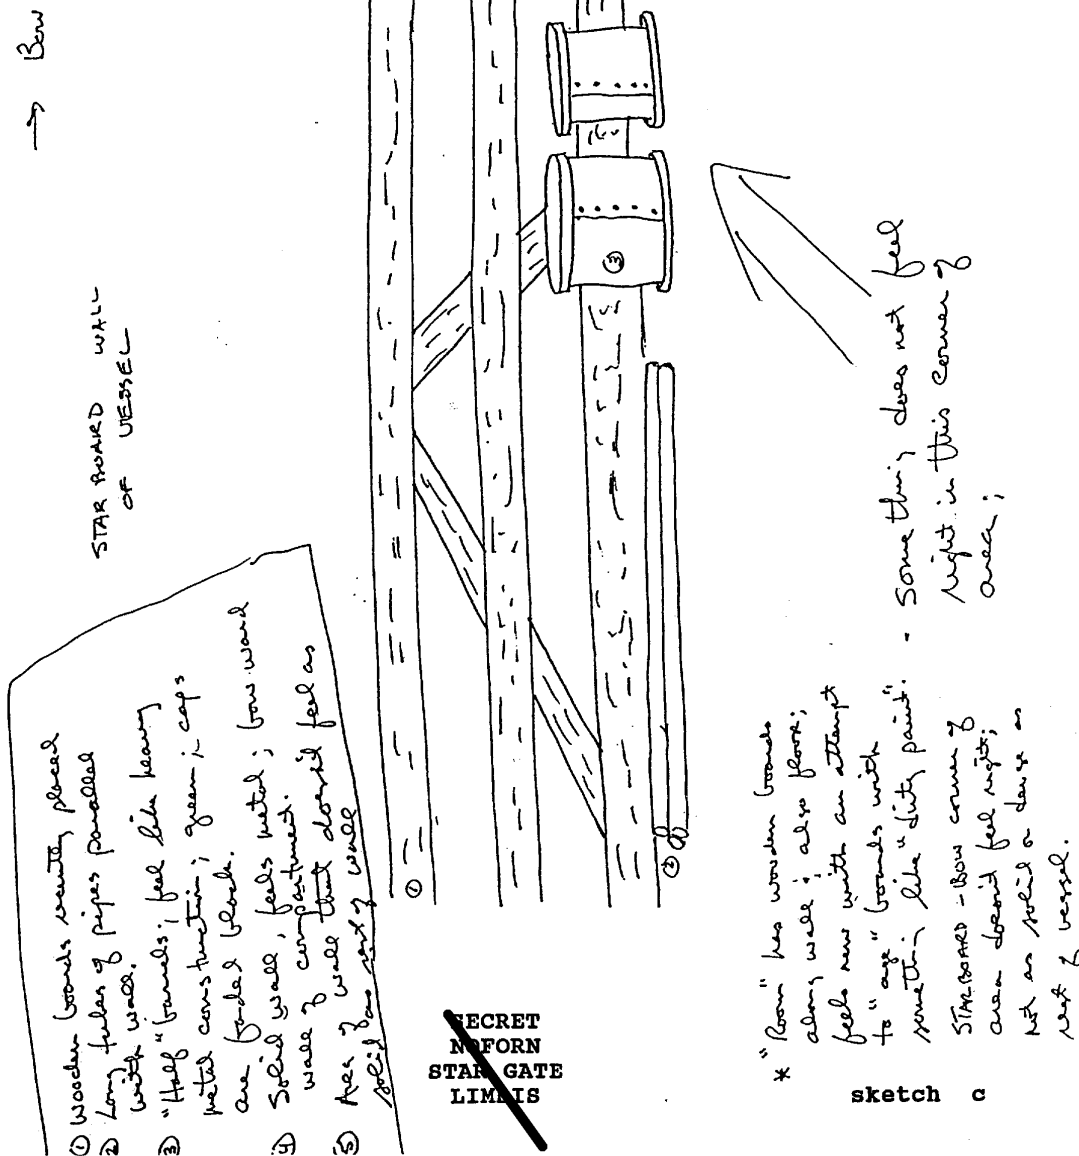 → Bow
STARBOARD WALL
OF VESSEL
① Wooden boards recently placed
② Long tubes of pipes paralled
with wall.
③ "Half" barrels; feel like heavy
metal construction; green; caps
are faded black.
④ Solid wall, feels metal; bow-ward
wall of compartment.
⑤ Area of wall that doesn't feel as
solid as rest of wall
①
②
③
- Something does not feel
right in this corner of
area;
* "Room" has wooden boards
along wall; also floor;
feels new with an attempt
to "age" boards with
something like "dirty paint".
STARBOARD-BOW corner of
area doesn't feel right;
not as solid or dense as
rest of vessel.
SECRET
NOFORN
STAR GATE
LIMDIS
sketch c